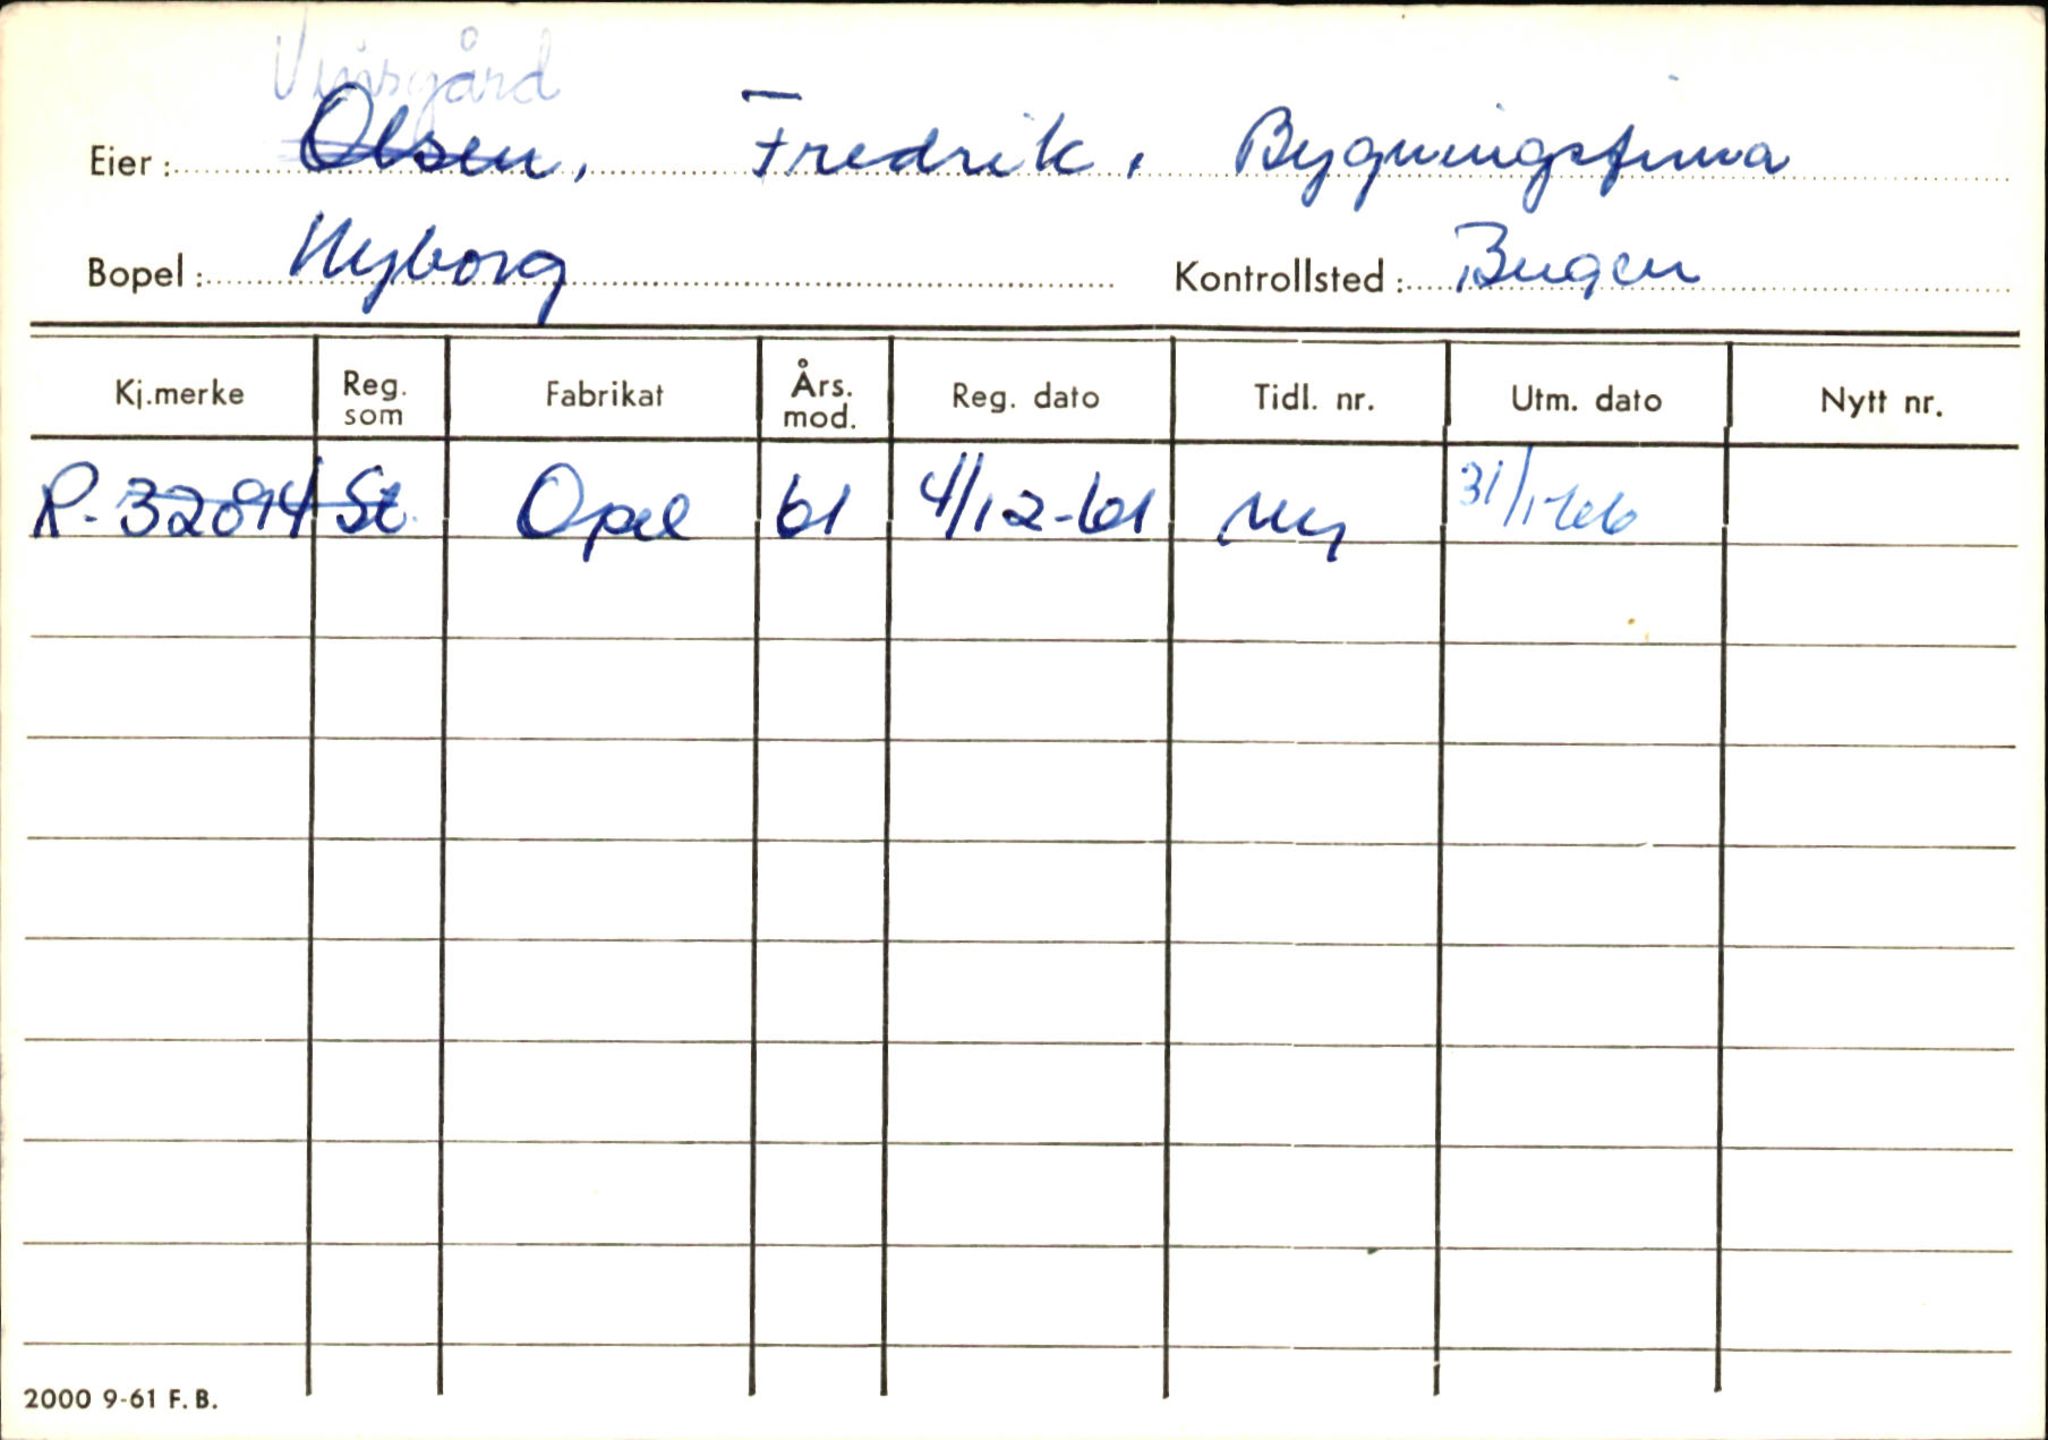 Eier: Olsen, Fredrik, Bygningsfirma
Bopel: Nyborg Kontrollsted: Bergen
Kj.merke Reg. som Fabrikat Års. mod. Reg. dato Tidl. nr. Utm. dato Nytt nr.
R-32894 St. Opel 61 4/12-61 Ny 31/1-66
2000 9-61 F.B.